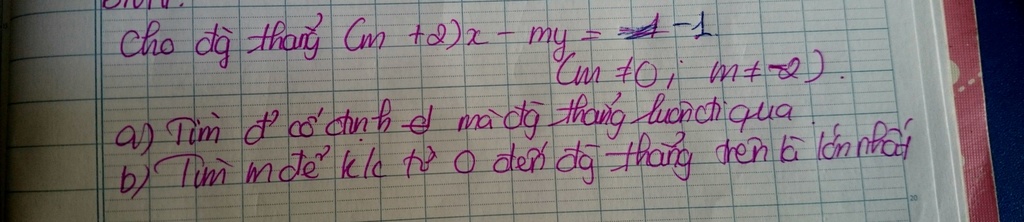 Cho đg thẳng (m +2)x - my = -1
(m ≠ 0; m ≠ -2).
a) Tìm đ' cố định mà đg thẳng luôn đi qua
b) Tìm m để k/c từ O đến đg thẳng trên là lớn nhất